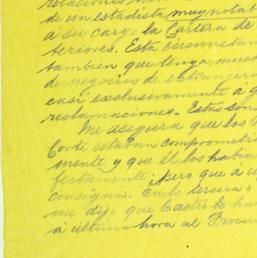 relaciones
de un estadista muy notab
a su cargo la Cartera de
teriores. Esta circunstan
tambien que tenga muc
de negocios de extranjero
casi exclusivamente a
reclamaciones. Estos son
Me asegura que los
Corte estaban comprometi
mente y que él los habia
fectamente; pero que a u
consigna. En la tercera o
me dijo que Castro le ha
a última hora al Procur